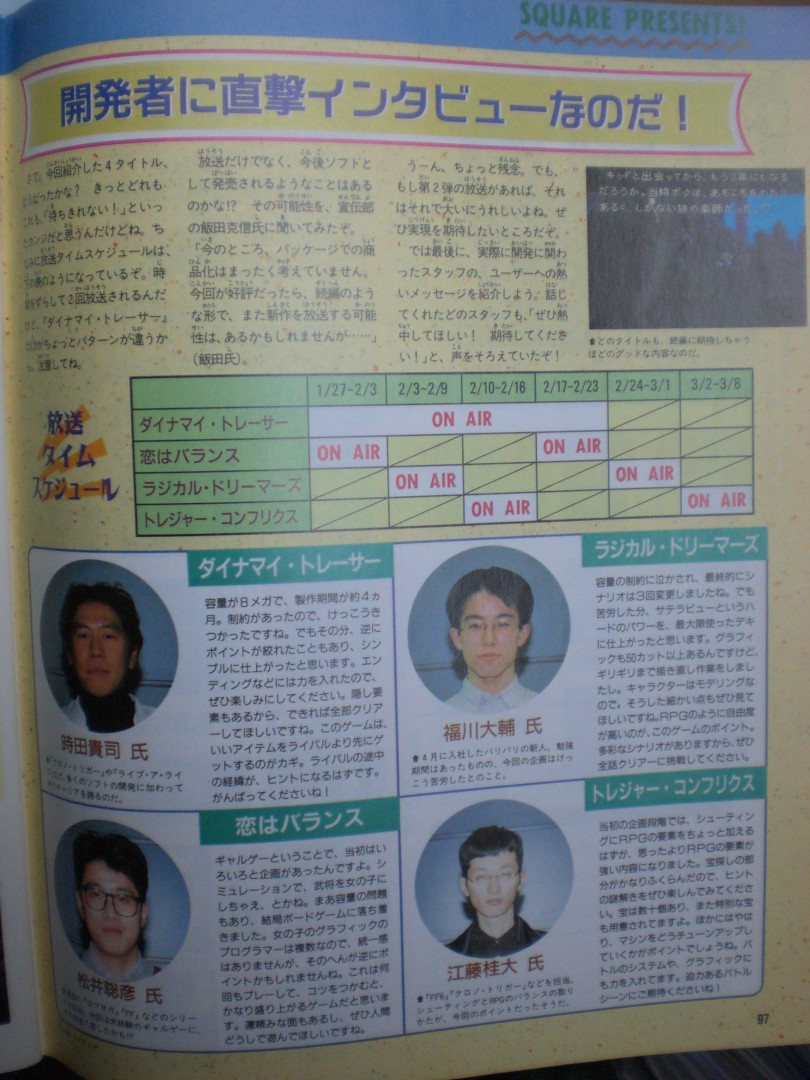 SQUARE PRESENTS!
開発者に直撃インタビューなのだ!
で、今回紹介した4タイトル、
どうだったかな? きっとどれも
これも、「待ちきれない!」といっ
たカンジだと思うんだけどね。ち
なみに放送タイムスケジュールは、
の表のようになっているぞ。時
ずらして2回放送されるんだ
けど、『ダイナマイ・トレーサー』
だけがちょっとパターンが違うか
ら、注意してね。
放送だけでなく、今後ソフトと
して発売されるようなことはある
のかな!? その可能性を、宣伝部
の飯田克信氏に聞いてみたぞ。
「今のところ、パッケージでの商
品化はまったく考えていません。
今回が好評だったら、続編のよう
な形で、また新作を放送する可能
性は、あるかもしれませんが……」
(飯田氏)。
うーん、ちょっと残念。でも、
もし第2弾の放送があれば、それ
はそれで大いにうれしいよね。ぜ
ひ実現を期待したいところだぞ。
では最後に、実際に開発に関わ
ったスタッフの、ユーザーへの熱
いメッセージを紹介しよう。話し
てくれたどのスタッフも、「ぜひ熱
中してほしい! 期待してくださ
い!」と、声をそろえていたぞ!
キッドと出会ってから、もう3年にもなる
だろうか。当時ボクは、あちこちをわたり
あるく、しがない旅の楽師だった。
★どのタイトルも、続編に期待しちゃう
ほどのグッドな内容なのだ。
放送
タイム
スケジュール
1/27~2/3 2/3~2/9 2/10~2/16 2/17~2/23 2/24~3/1 3/2~3/8
ダイナマイ・トレーサー ON AIR
恋はバランス ON AIR ON AIR
ラジカル・ドリーマーズ ON AIR ON AIR
トレジャー・コンフリクス ON AIR ON AIR
ダイナマイ・トレーサー
容量が8メガで、製作期間が約4ヵ
月。制約があったので、けっこうき
つかったですね。でもその分、逆に
ポイントが絞れたこともあり、シン
プルに仕上がったと思います。エン
ディングなどには力を入れたので、
ぜひ楽しみにしてください。隠し要
素もあるから、できれば全部クリア
ーしてほしいですね。このゲームは、
いいアイテムをライバルより先にゲ
ットするのがカギ。ライバルの途中
の経緯が、ヒントになるはずです。
がんばってくださいね!
時田貴司 氏
『クロノ・トリガー』や『ライブ・ア・ライ
ブ』など、多くのソフトの開発に加わって
キャリアを誇るのだ。
ラジカル・ドリーマーズ
容量の制約に泣かされ、最終的にシ
ナリオは3回変更しましたね。でも
苦労した分、サテラビューというハ
ードのパワーを、最大限使ったデキ
に仕上がったと思います。グラフィ
ックも50カット以上あるんですけど、
ギリギリまで描き直し作業をしまし
たし。キャラクターはモデリングな
ので、そうした細かい点もぜひ見て
ほしいですね。RPGのように自由度
が高いのが、このゲームのポイント。
多彩なシナリオがありますから、ぜひ
全話クリアーに挑戦してください。
福川大輔 氏
★4月に入社したバリバリの新人。勉強
期間はあったものの、今回の企画はけっ
こう苦労したとのこと。
恋はバランス
ギャルゲーということで、当初はい
ろいろと企画があったんですよ。シ
ミュレーションで、武将を女の子に
しちゃえ、とかね。まあ容量の問題
もあり、結局ボードゲームに落ち着
きました。女の子のグラフィックの
プログラマーは複数なので、統一感
はありませんが、そのへんが逆にポ
イントかもしれませんね。これは何
回もプレーして、コツをつかむと、
かなり盛り上がるゲームだと思いま
す。運頼みな面もあるし、ぜひ人間
どうしで遊んでほしいですね。
松井聡彦 氏
『FF』などのシリー
今回は未経験のギャルゲーに、
トレジャー・コンフリクス
当初の企画段階では、シューティン
グにRPGの要素をちょっと加える
はずが、思ったよりRPGの要素が
強い内容になりました。宝探しの部
分がかなりふくらんだので、ヒント
の謎解きをぜひ楽しんでみてくださ
い。宝は数十個あり、また特別な宝
も用意されてますよ。ほかにはやは
り、マシンをどうチューンアップし
ていくかがポイントでしょうね。バ
トルのシステムや、グラフィックに
も力を入れてます。迫力あるバトル
シーンにご期待くださいね!
江藤桂大 氏
★『FF6』『クロノ・トリガー』などを担当。
シューティングとRPGのバランスの取り
かたが、今回のポイントだったそうだ。
97